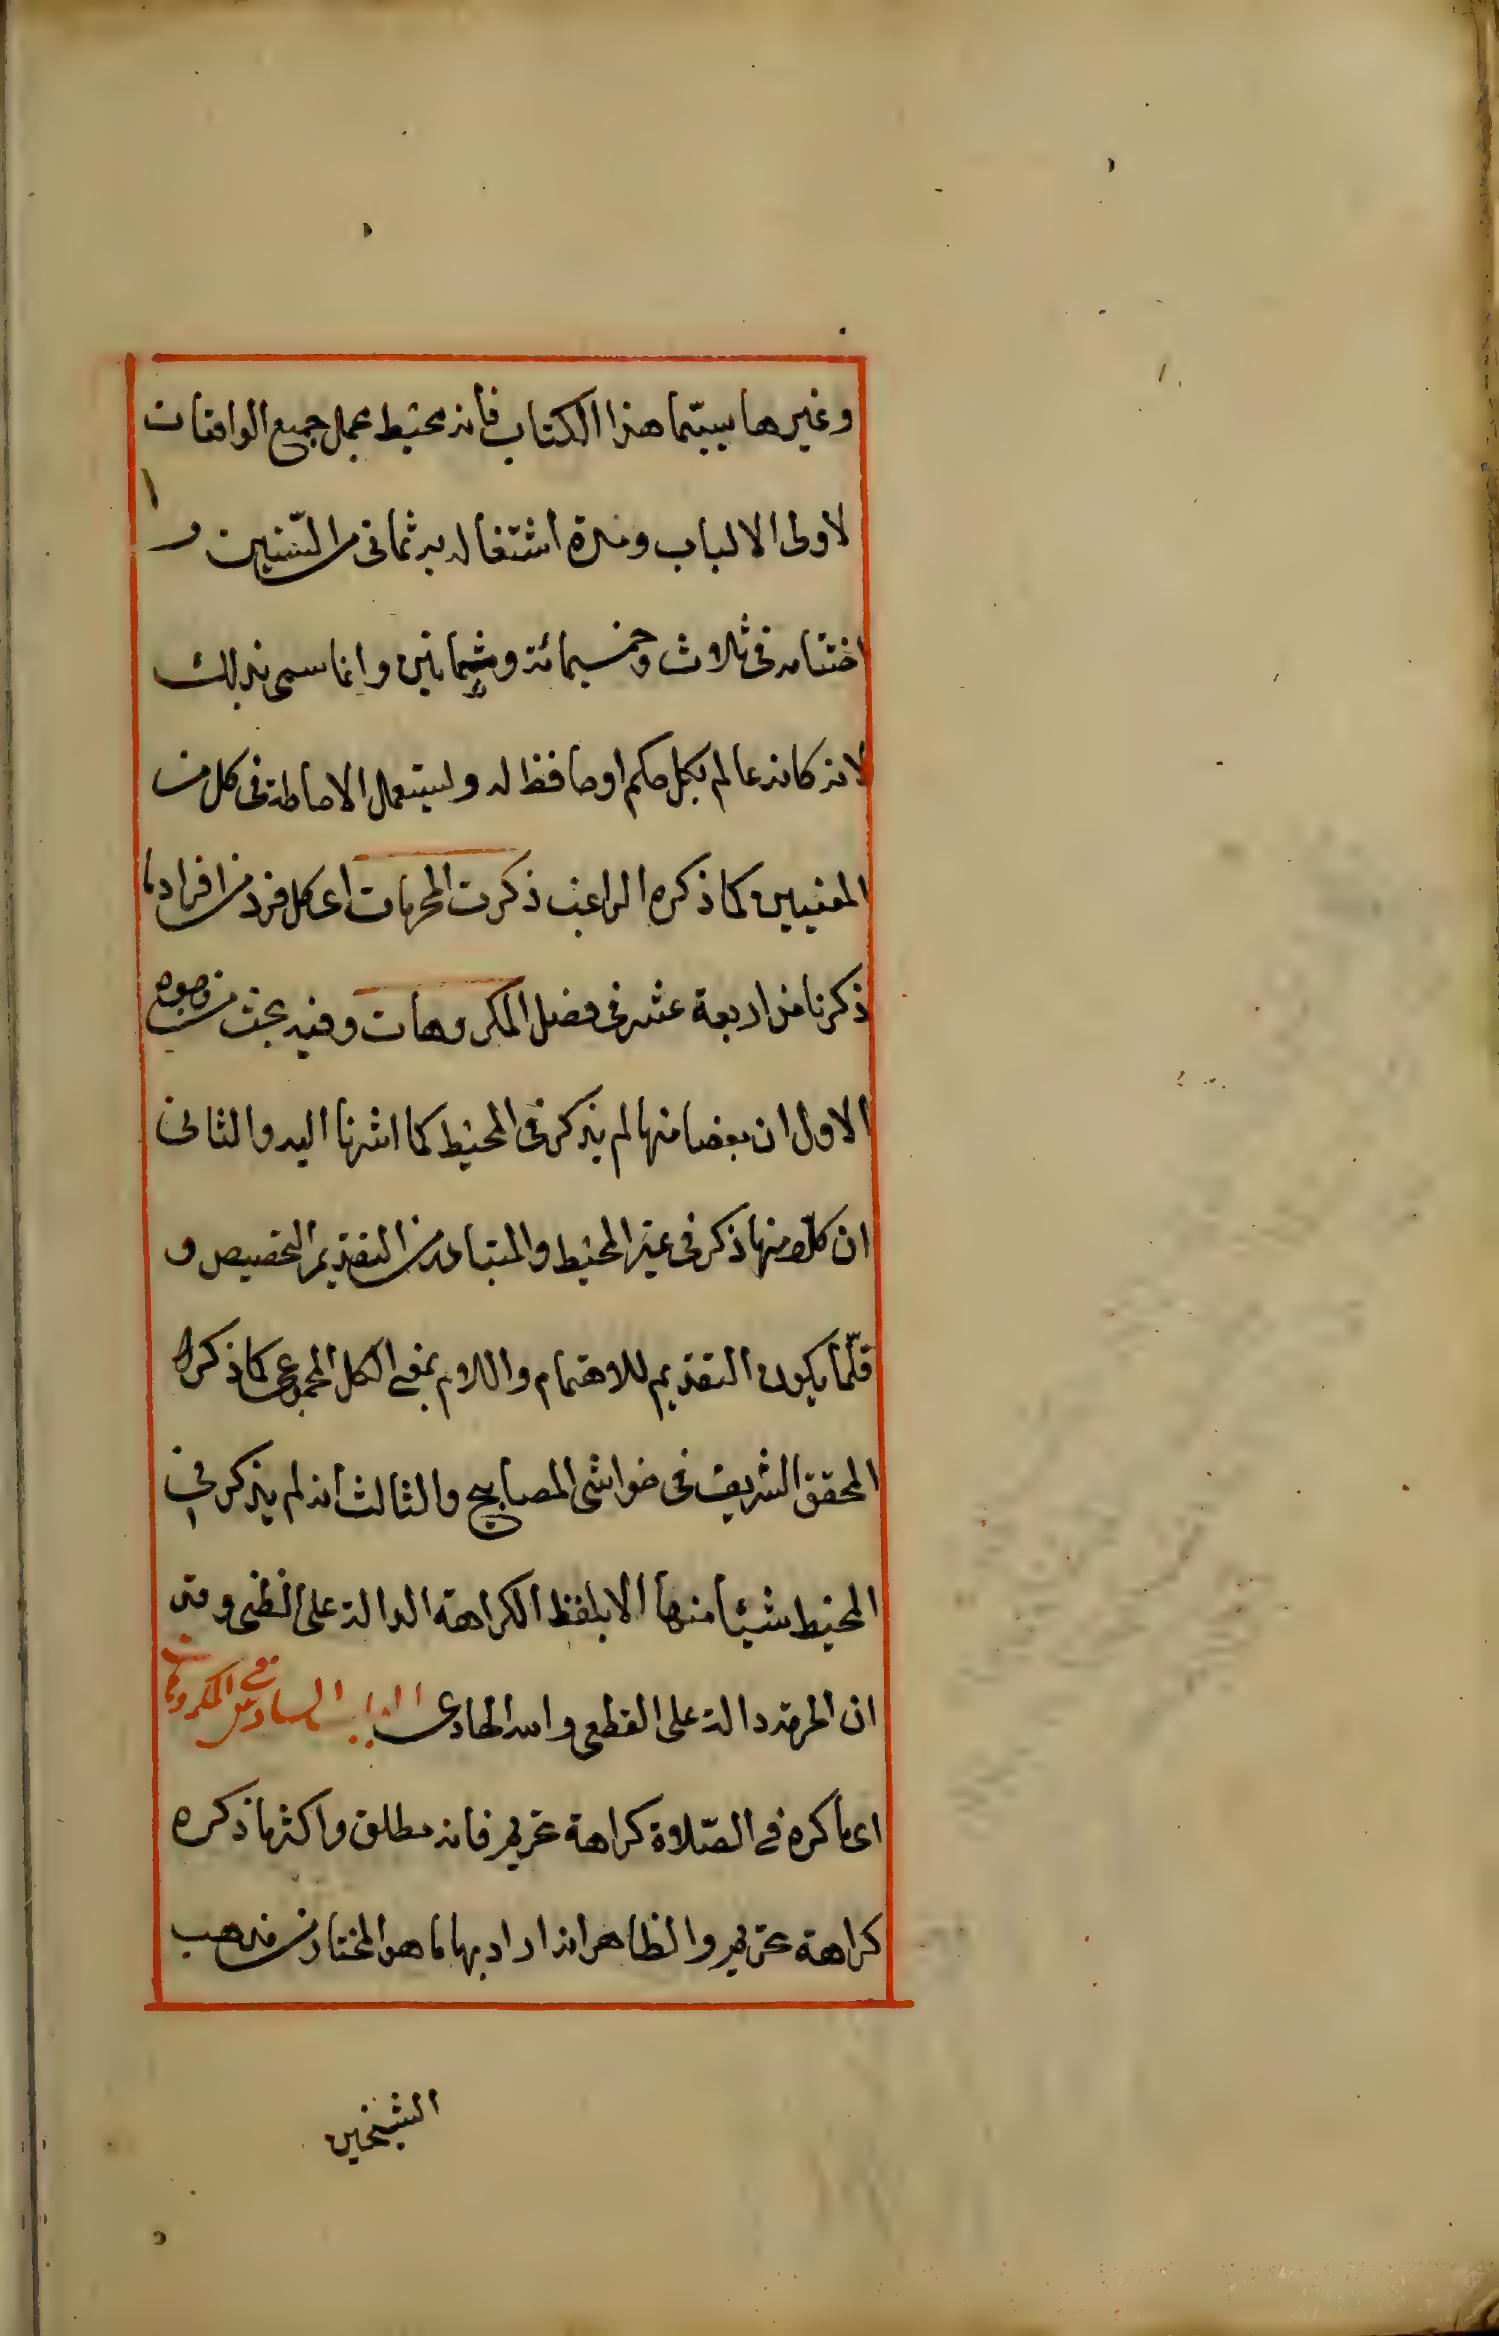 وغيرها سيّما هذا الكتاب فانه محيط بجمل جميع الواقعات
لاولى الالباب ومدة اشتغاله به ثمانى من السّنين و ا
اختتامه فى ثلاث وخمسمائة وثمانين وانما سمى بذلك
لانه كانه عالم بكل حكم او حافظ له وليستعمل الاحاطة فى كل من
المعنيين كما ذكره الراغب ذكرت المحرمات اى كل فرد من افرادها
ذكرنا من اربعة عشر فى فصل المكروهات وفيه بحث من وجوه
الاول ان بعضا منها لم يذكر فى المحيط كما اشرنا اليه والثانى
ان كلا منها ذكر فى غير المحيط والمتبادر من التقديم التخصيص و
قلّما يكون التقديم للاهتمام واللام بمعنى الكل المجموعى كما ذكره
المحقق الشريف فى حواشى المصابيح والثالث انه لم يذكر فى
المحيط شيئا منها الا بلفظ الكراهة الدالة على الظنى ومر
ان الحرمة دالة على القطعى والله الهادى الباب السادس فى المكروهات
اى ما كره فى الصّلاة كراهة تحريم فانه مطلق واكثرها ذكره
كراهة تحريم والظاهر انه اراد بها ما هو المختار من مذهب
الشيخين